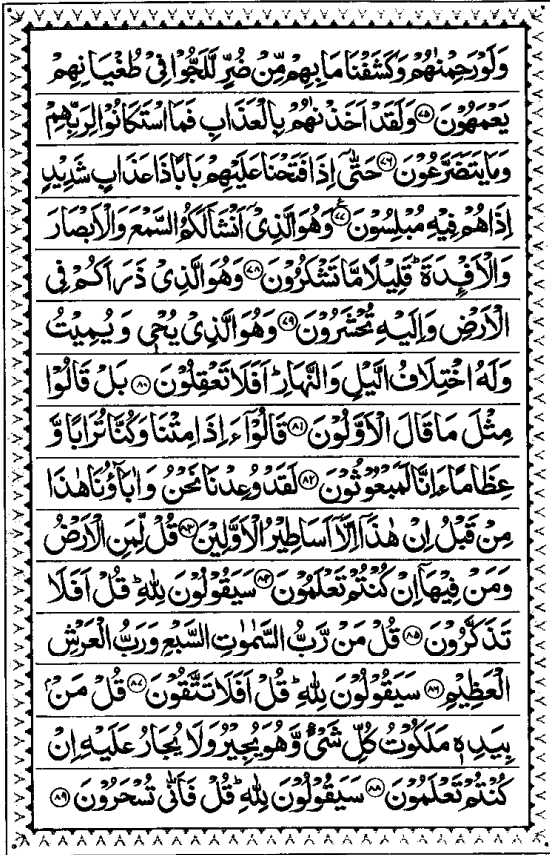 وَلَوْ رَحِمْنٰهُمْ وَكَشَفْنَا مَا بِهِمْ مِّنْ ضُرٍّ لَّلَجُّوْا فِیْ طُغْیَانِهِمْ
یَعْمَهُوْنَ ۝۷۵ وَلَقَدْ اَخَذْنٰهُمْ بِالْعَذَابِ فَمَا اسْتَكَانُوْا لِرَبِّهِمْ
وَمَا یَتَضَرَّعُوْنَ ۝۷۶ حَتّٰۤی اِذَا فَتَحْنَا عَلَیْهِمْ بَابًا ذَا عَذَابٍ شَدِیْدٍ
اِذَا هُمْ فِیْهِ مُبْلِسُوْنَ ۝۷۷ وَهُوَ الَّذِیْۤ اَنْشَاَ لَكُمُ السَّمْعَ وَالْاَبْصَارَ
وَالْاَفْـِٕدَةَ ؕ قَلِیْلًا مَّا تَشْكُرُوْنَ ۝۷۸ وَهُوَ الَّذِیْ ذَرَاَكُمْ فِی
الْاَرْضِ وَاِلَیْهِ تُحْشَرُوْنَ ۝۷۹ وَهُوَ الَّذِیْ یُحْیٖ وَیُمِیْتُ
وَلَهُ اخْتِلَافُ الَّیْلِ وَالنَّهَارِ ؕ اَفَلَا تَعْقِلُوْنَ ۝۸۰ بَلْ قَالُوْا
مِثْلَ مَا قَالَ الْاَوَّلُوْنَ ۝۸۱ قَالُوْۤا ءَاِذَا مِتْنَا وَكُنَّا تُرَابًا وَّ
عِظَامًا ءَاِنَّا لَمَبْعُوْثُوْنَ ۝۸۲ لَقَدْ وُعِدْنَا نَحْنُ وَاٰبَآؤُنَا هٰذَا
مِنْ قَبْلُ اِنْ هٰذَاۤ اِلَّاۤ اَسَاطِیْرُ الْاَوَّلِیْنَ ۝۸۳ قُلْ لِّمَنِ الْاَرْضُ
وَمَنْ فِیْهَاۤ اِنْ كُنْتُمْ تَعْلَمُوْنَ ۝۸۴ سَیَقُوْلُوْنَ لِلّٰهِ ؕ قُلْ اَفَلَا
تَذَكَّرُوْنَ ۝۸۵ قُلْ مَنْ رَّبُّ السَّمٰوٰتِ السَّبْعِ وَرَبُّ الْعَرْشِ
الْعَظِیْمِ ۝۸۶ سَیَقُوْلُوْنَ لِلّٰهِ ؕ قُلْ اَفَلَا تَتَّقُوْنَ ۝۸۷ قُلْ مَنْۢ
بِیَدِهٖ مَلَكُوْتُ كُلِّ شَیْءٍ وَّهُوَ یُجِیْرُ وَلَا یُجَارُ عَلَیْهِ اِنْ
كُنْتُمْ تَعْلَمُوْنَ ۝۸۸ سَیَقُوْلُوْنَ لِلّٰهِ ؕ قُلْ فَاَنّٰی تُسْحَرُوْنَ ۝۸۹